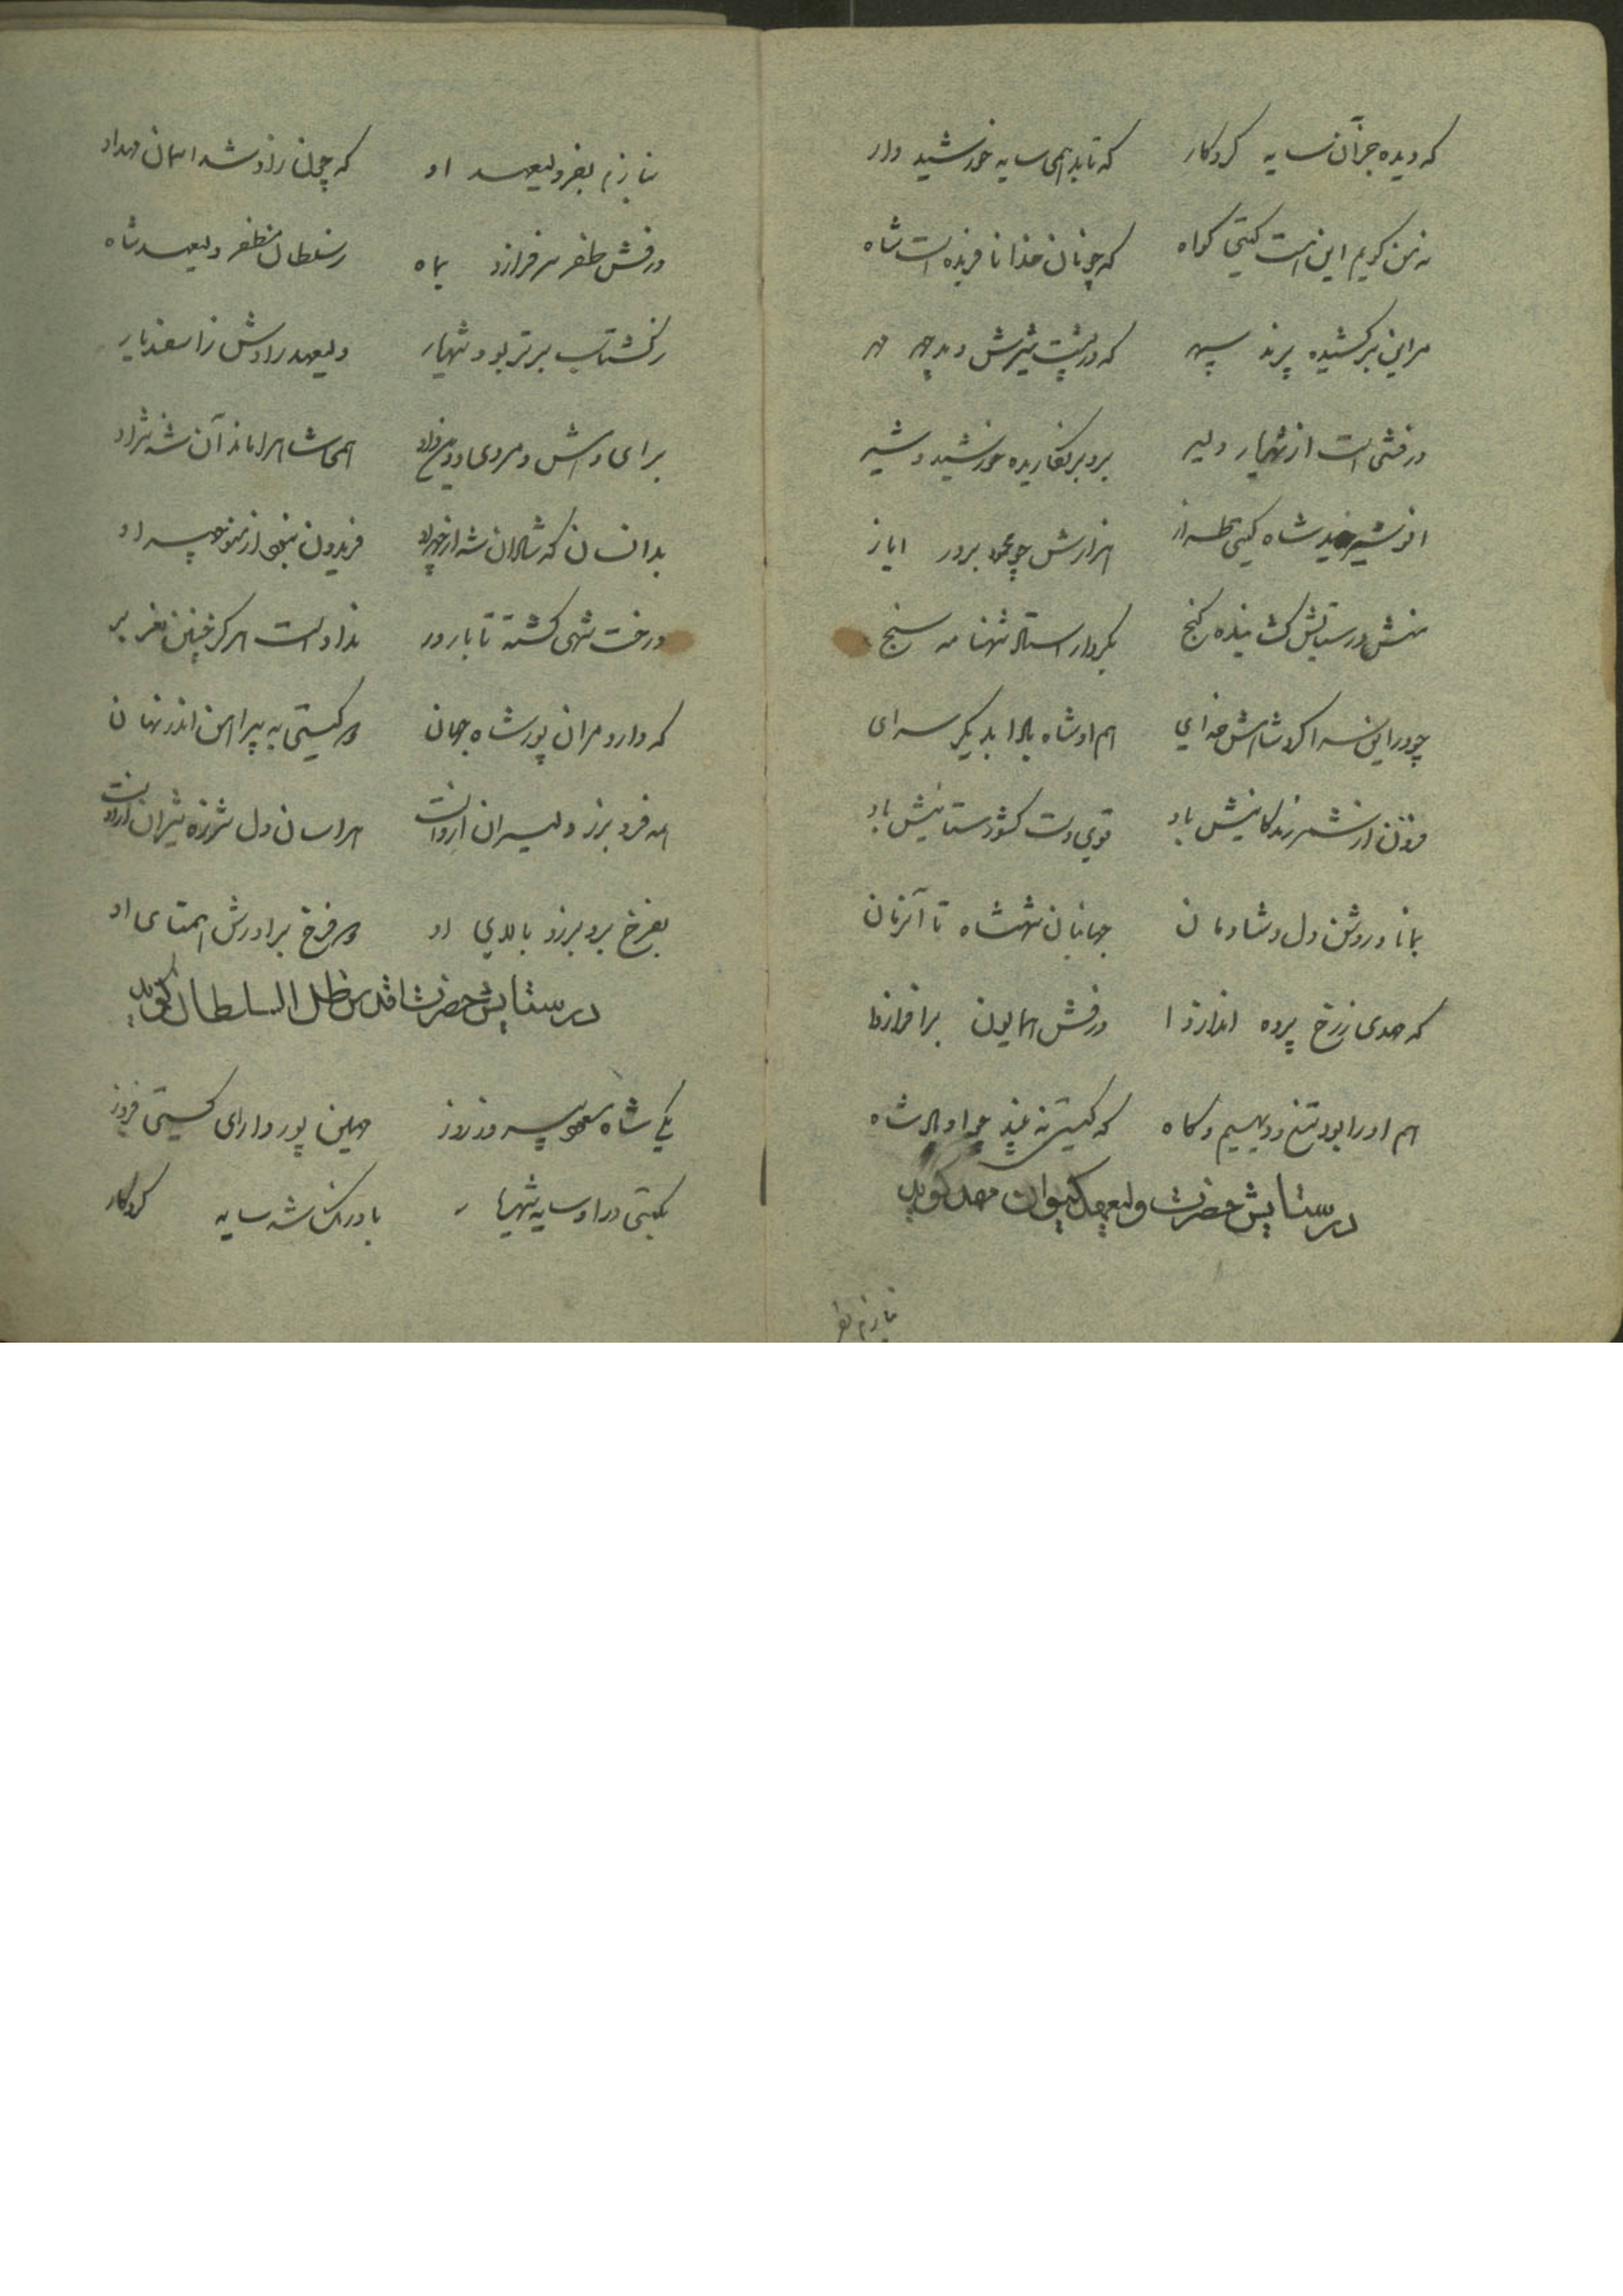 که دیده جز آن سایه کردکار که تابد همی سایه خورشید وار
نه من کویم این است کیتی کواه که چونان خدا نافریده است شاه
مر این برکشیده پرند سپهر که در پشت شیرش دمد چهر مهر
درفشی است از شهریار دلیر برو بر نکاریده خورشید و شیر
شاه کیتی طراز هزارش چو محمود برور ایاز
منش در ستایش کشاینده کنج بکردار استاد شهنامه سنج
چو در این سرا کرد شاهش خدای هم او شاه بادا بدیکر سرای
فزون از شمر زندکانیش باد قوی دست کشورستانیش باد
بماناد روشن دل و شادمان جهانبان شهنشاه تا آنزمان
که مهدی ز رخ پرده اندازدا درفش همایون برافرازدا
هم او را بود تیغ و دیهیم و کاه که کیتی نه بیند جز او شاه
در ستایش حضرت ولیعهد کیوان مهد کوید
بنازم بفر ولیعهد او که چون زاد شد آسمان مهد او
درفش ظفر سر فرازد بماه ز سلطان مظفر ولیعهد شاه
ز کشتاسب برتر بود شهریار ولیعهد رادش ز اسفندیار
برای و بش و مردی و همی شاه را ماند آن شه نژاد
بدانسان که شادان شه از چهر او فریدون نبود از منوچهر او
درخت شهی کشته تا بارور ندادست هرکز چنین نغز بر
که دارد مر آن پور شاه جهان دو کیتی به پیراهن اندر نهان
همه فر و برز دلیران ازوست هراسان دل شرزه شیران ازوست
بفرخ برو برز بالای او دو فرخ برادرش همتای او
در ستایش حضرت اقدس ظل السلطان کوید
یکی شاه مسعود پیروز روز مهین پور دارای کیتی فروز
بکیتی در او سایه شهریار باورنک شه سایه کردکار
بنازم بفر